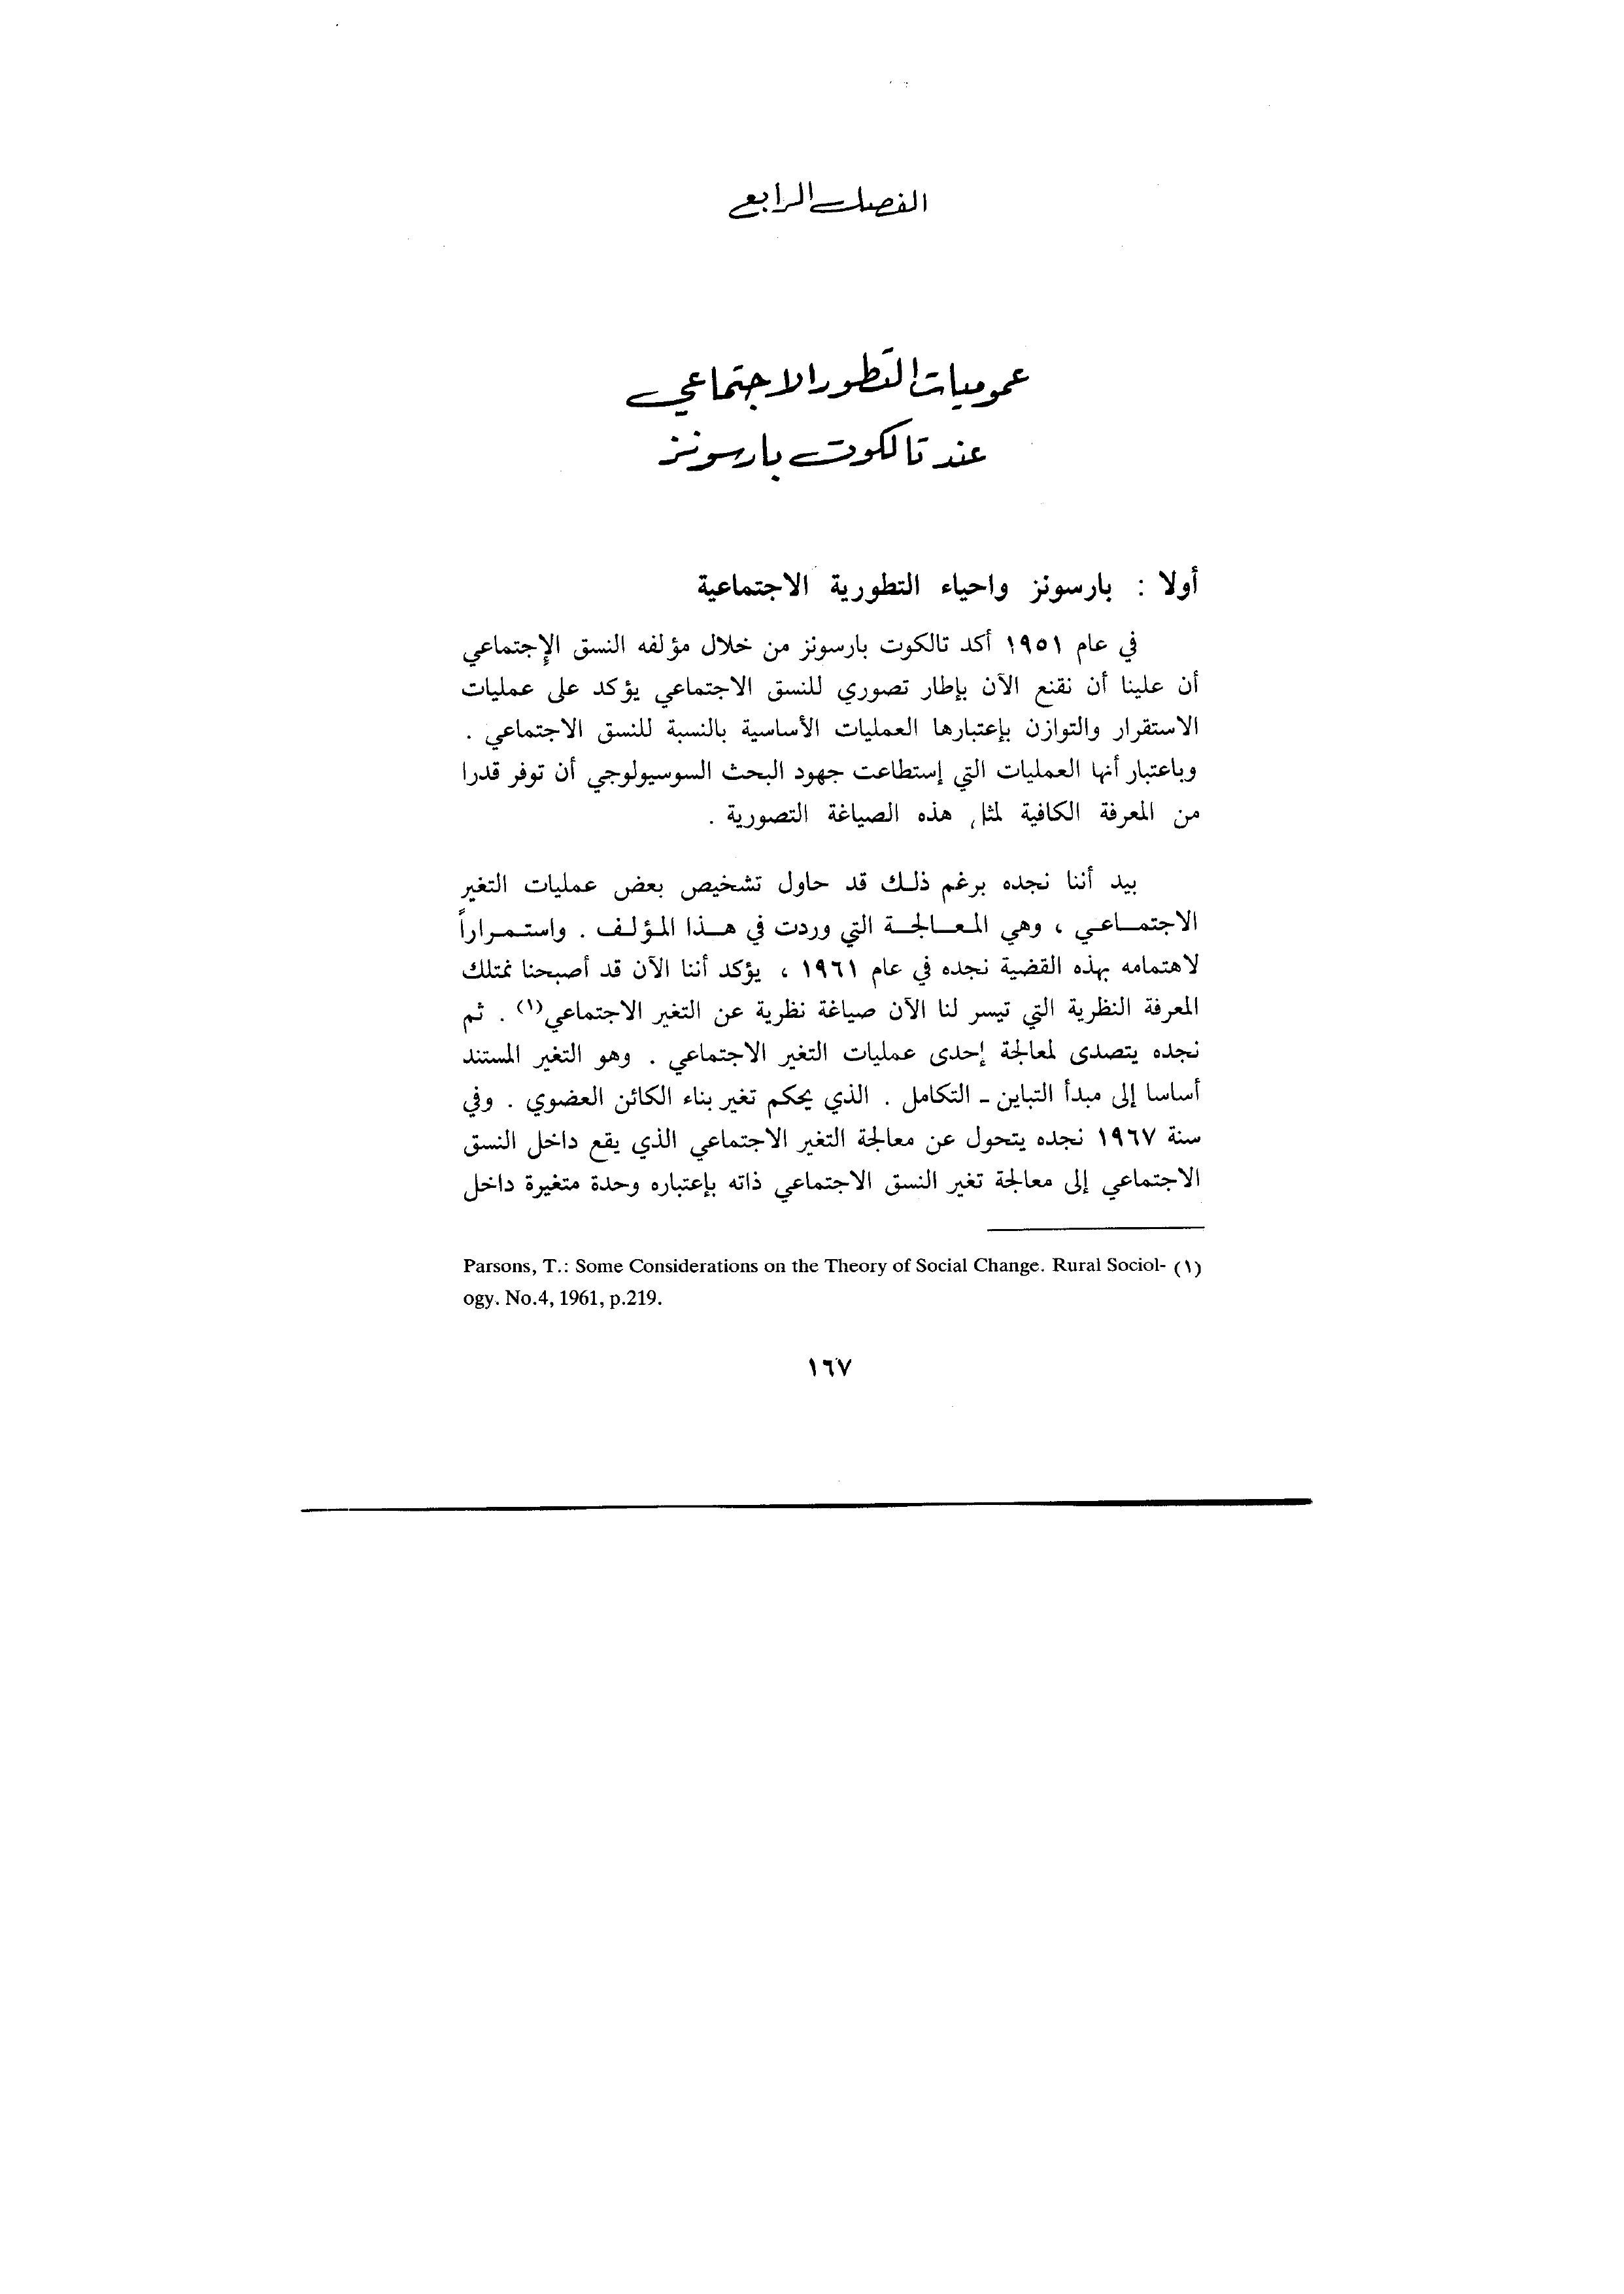 الفصل الرابع
عموميات التطور الاجتماعي
عند تالكوت بارسونز
أولا : بارسونز واحياء التطورية الاجتماعية
في عام ١٩٥١ أكد تالكوت بارسونز من خلال مؤلفه النسق الإجتماعي
أن علينا أن نقنع الآن بإطار تصوري للنسق الاجتماعي يؤكد على عمليات
الاستقرار والتوازن بإعتبارها العمليات الأساسية بالنسبة للنسق الاجتماعي .
وباعتبار أنها العمليات التي إستطاعت جهود البحث السوسيولوجي أن توفر قدرا
من المعرفة الكافية لمثل هذه الصياغة التصورية .
بيد أننا نجده برغم ذلك قد حاول تشخيص بعض عمليات التغير
الاجتماعي ، وهي المعالجة التي وردت في هذا المؤلف . واستمراراً
لاهتمامه بهذه القضية نجده في عام ١٩٦١ ، يؤكد أننا الآن قد أصبحنا نمتلك
المعرفة النظرية التي تيسر لنا الآن صياغة نظرية عن التغير الاجتماعي(١) . ثم
نجده يتصدى لمعالجة إحدى عمليات التغير الاجتماعي . وهو التغير المستند
أساسا إلى مبدأ التباين ـ التكامل . الذي يحكم تغير بناء الكائن العضوي . وفي
سنة ١٩٦٧ نجده يتحول عن معالجة التغير الاجتماعي الذي يقع داخل النسق
الاجتماعي إلى معالجة تغير النسق الاجتماعي ذاته بإعتباره وحدة متغيرة داخل
(١) Parsons, T.: Some Considerations on the Theory of Social Change. Rural Sociol-
ogy. No.4, 1961, p.219.
١٦٧